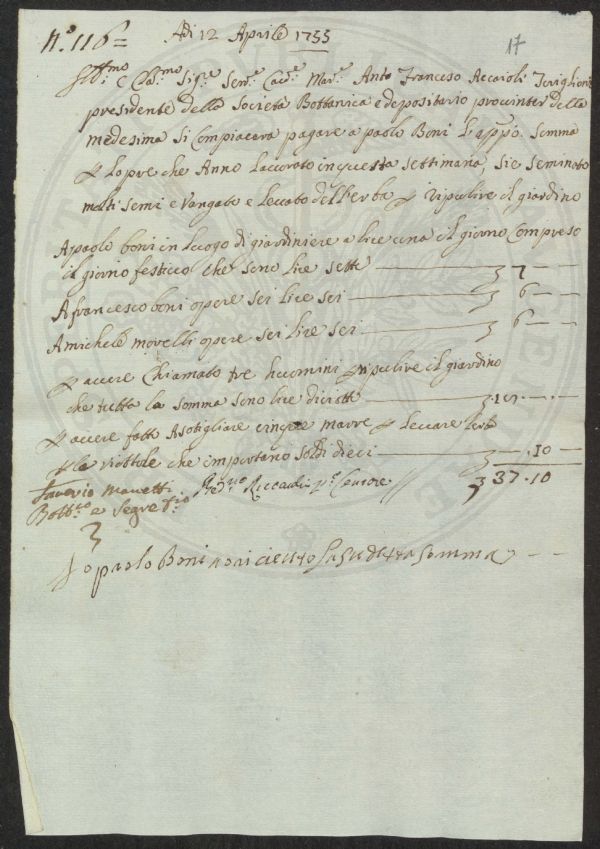 N.º 116=
Adì 12 Aprile 1755
17
Ill:mo e Cla:mo Sig:re Sen:re Cav:re Mar:e Anto Franceso Acciaioli
presidente della Società Bottanica e depositario pro winter della
medesima si Compiacerà pagare a paolo Boni l'app:o Somma
p Lopre che Anno Lavorato in questa settimana, sie seminato
molti semi e vangato e Levato dell'erba p ripulire il giardino
A paolo boni in luogo di giardiniere a lire una il giorno Compreso
il giorno festivo che sono lire sette 7
A francesco boni opere sei lire sei 6
A michele morelli opere sei lire sei 6
p avere Chiamato tre huomini p ripulire il giardino
che tutta la somma sono lire diciotto
p avere fatto Asotigliare cinque marre p Levare
p le viottole che importano soldi dieci .10
Saverio Manetti
Riccardi p:o Censore
37.10
Bott:co e Segret:rio
Io paolo Boni o riceuto la sudetta somma